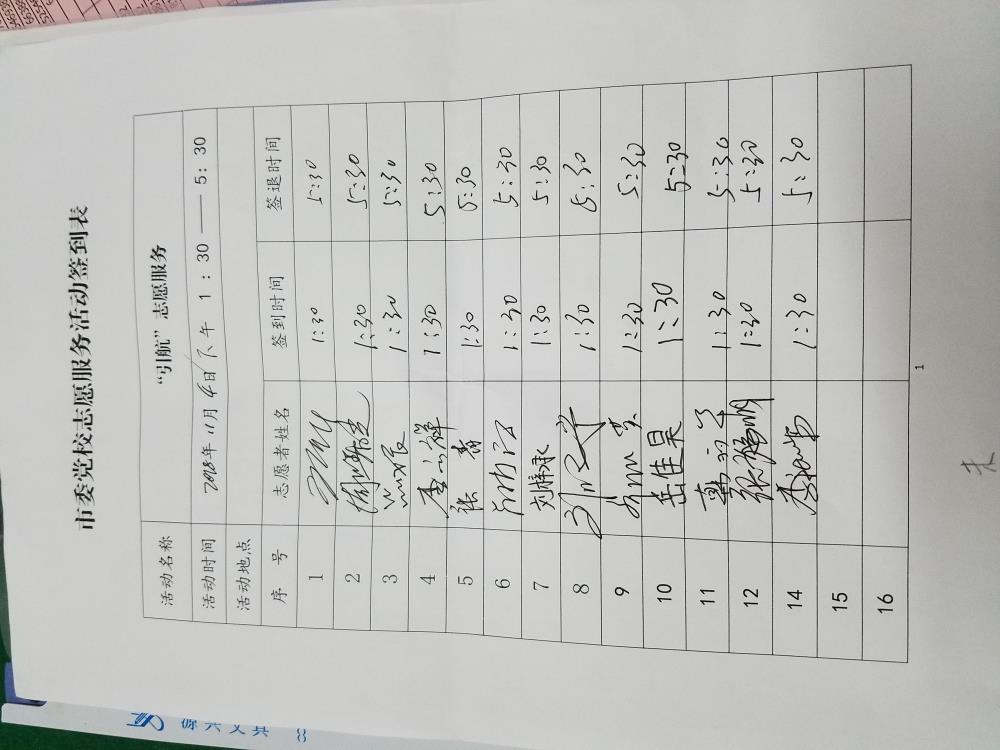 市委党校志愿服务活动签到表
活动名称 “引航”志愿服务
活动时间 2018年11月4日下午 1:30——5:30
活动地点
序 号 志愿者姓名 签到时间 签退时间
1 1:30 5:30
2 1:30 5:30
3 1:30 5:30
4 1:30 5:30
5 张 1:30 5:30
6 1:30 5:30
7 刘梓承 1:30 5:30
8 1:30 5:30
9 1:30 5:30
10 岳佳昊 1:30 5:30
11 1:30 5:30
12 1:30 5:30
14 1:30 5:30
15
16
1
源兴文具